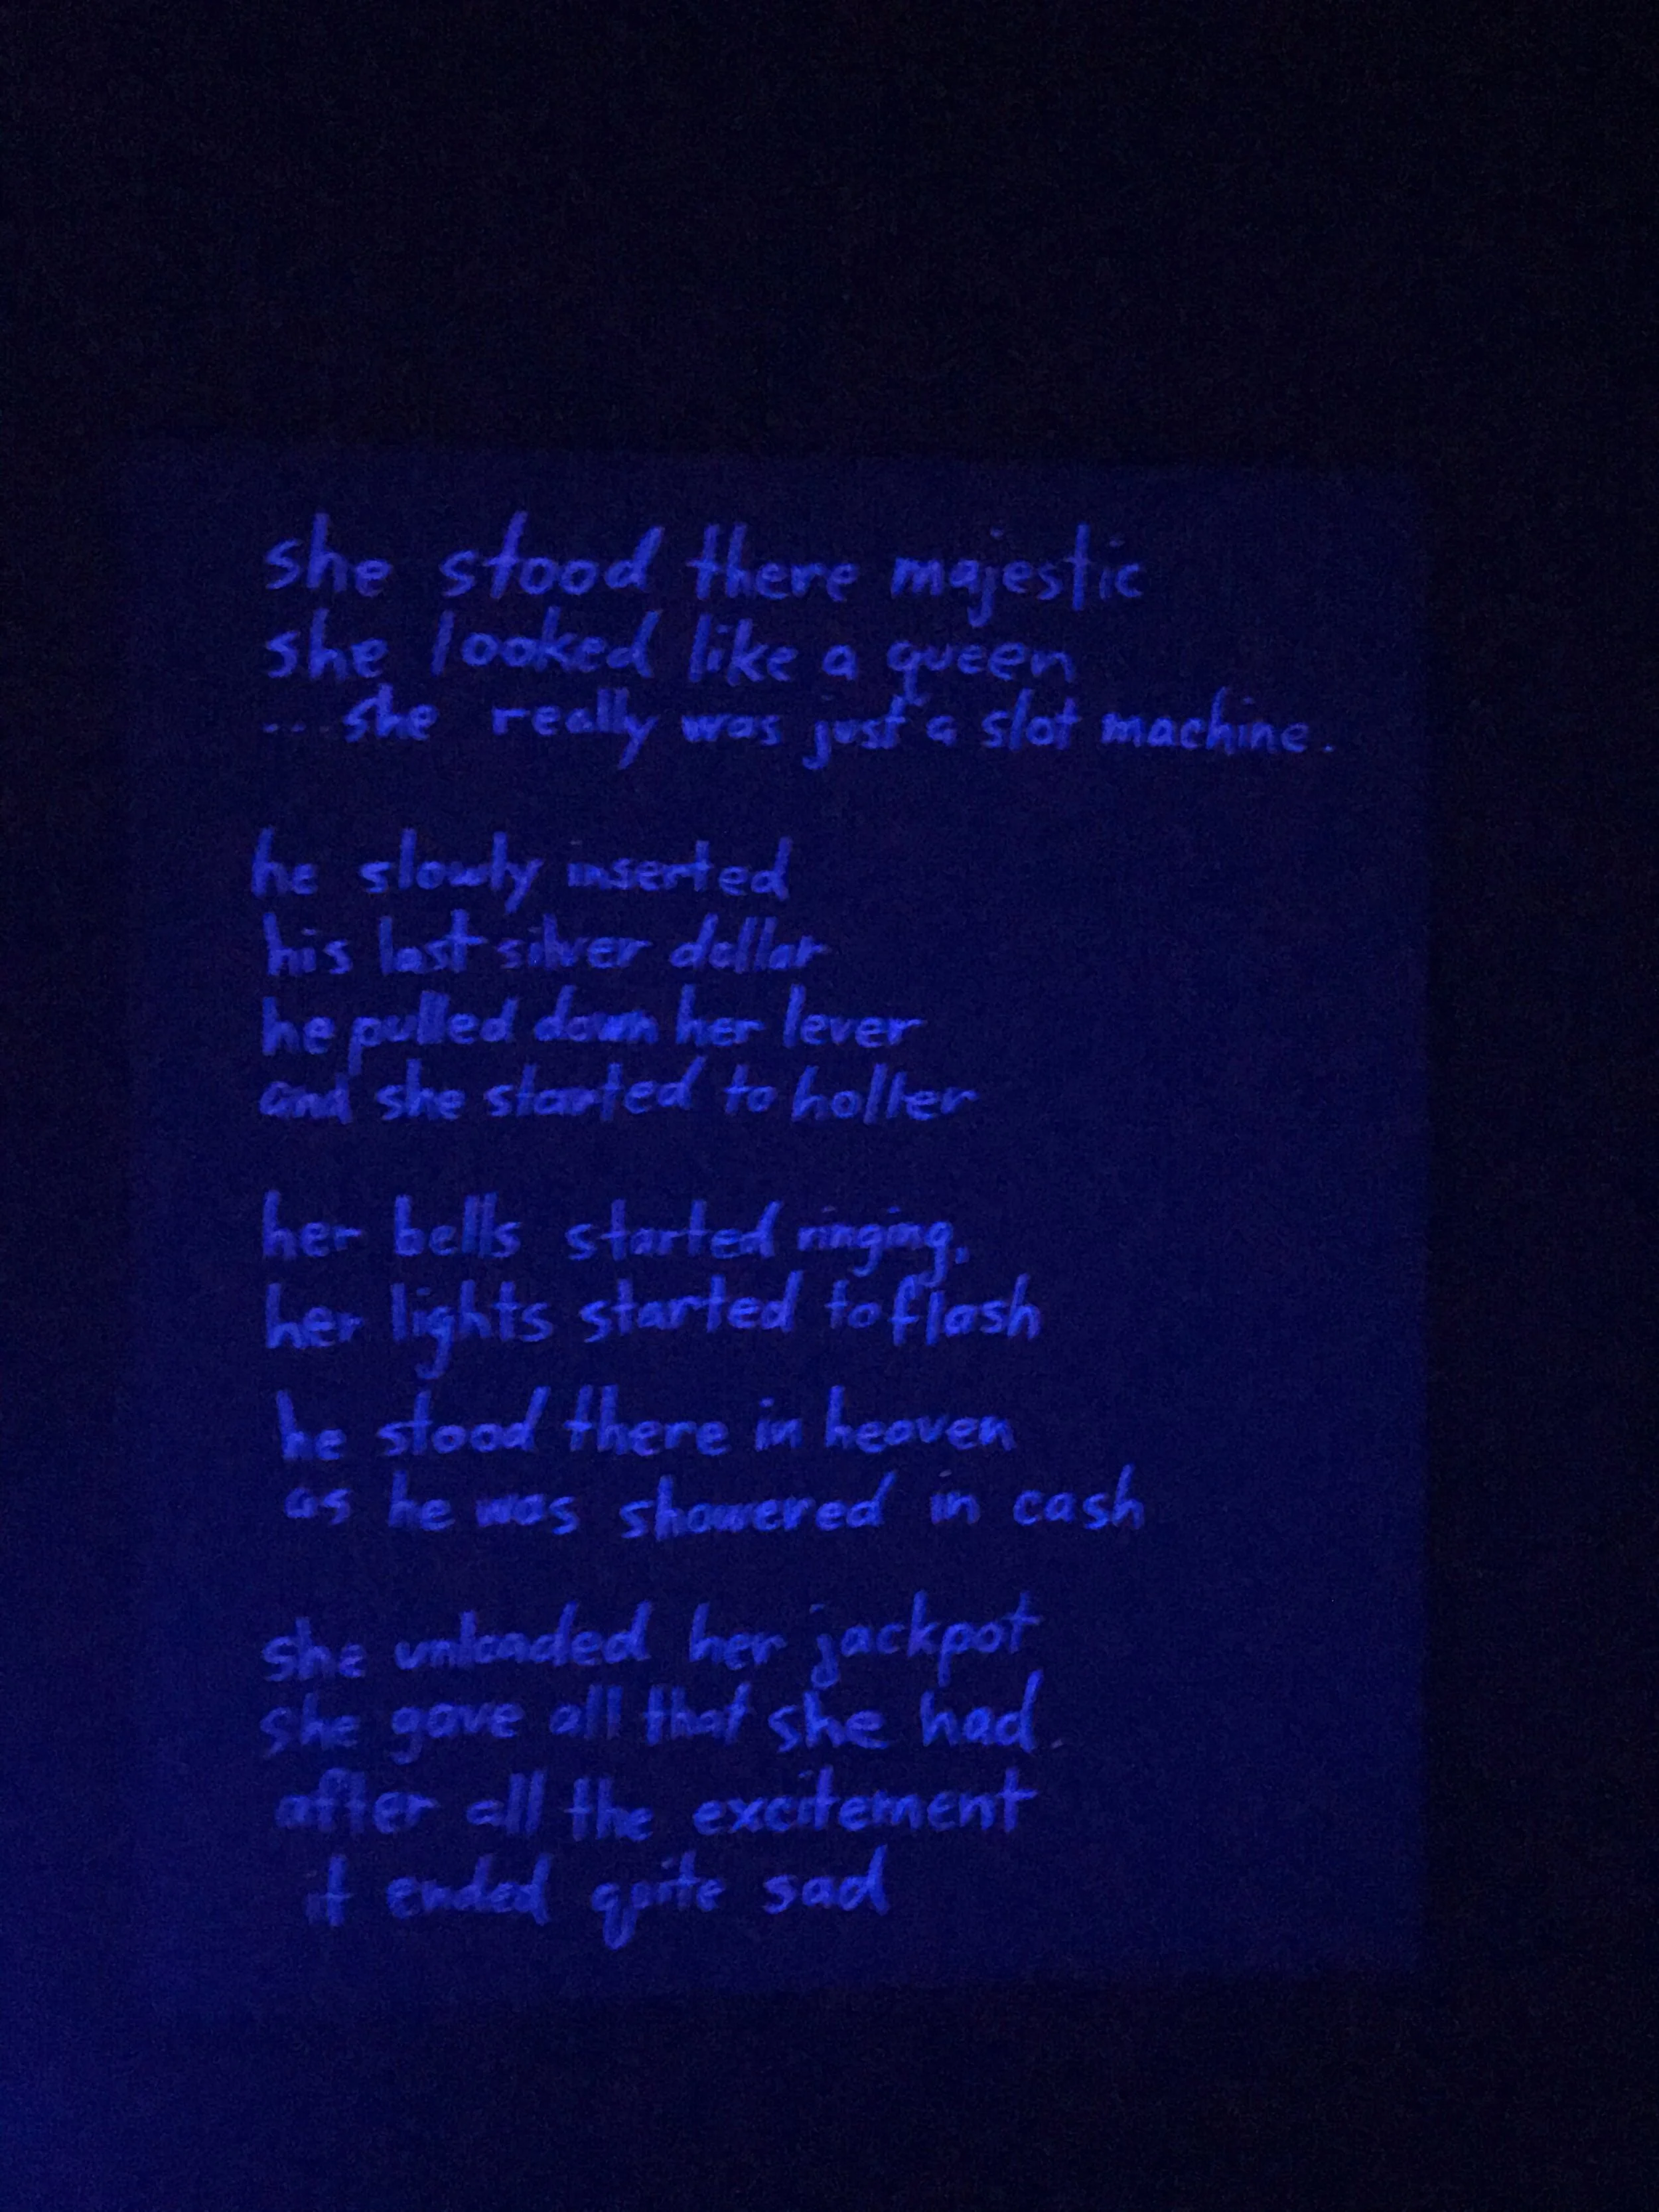 she stood there majestic
she looked like a queen
...she really was just a slot machine.
he slowly inserted
his last silver dollar
he pulled down her lever
and she started to holler
her bells started ringing,
her lights started to flash
he stood there in heaven
as he was showered in cash
she unloaded her jackpot
she gave all that she had.
after all the excitement
it ended quite sad